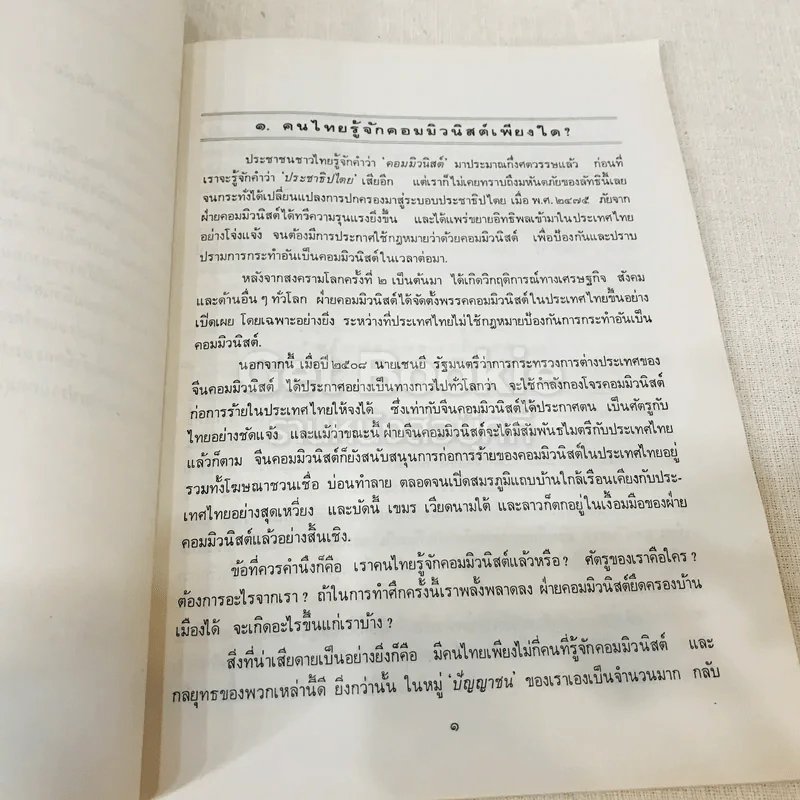 ๑. คนไทยรู้จักคอมมิวนิสต์เพียงใด?
ประชาชนชาวไทยรู้จักคำว่า 'คอมมิวนิสต์' มาประมาณกึ่งศตวรรษแล้ว ก่อนที่
เราจะรู้จักคำว่า 'ประชาธิปไตย' เสียอีก แต่เราก็ไม่เคยทราบถึงมหันตภัยของลัทธินี้เลย
จนกระทั่งได้เปลี่ยนแปลงการปกครองมาสู่ระบอบประชาธิปไตย เมื่อ พ.ศ. ๒๔๗๕ ภัยจาก
ฝ่ายคอมมิวนิสต์ได้ทวีความรุนแรงยิ่งขึ้น และได้แพร่ขยายอิทธิพลเข้ามาในประเทศไทย
อย่างโจ่งแจ้ง จนต้องมีการประกาศใช้กฎหมายว่าด้วยคอมมิวนิสต์ เพื่อป้องกันและปราบ
ปรามการกระทำอันเป็นคอมมิวนิสต์ในเวลาต่อมา.
หลังจากสงครามโลกครั้งที่ ๒ เป็นต้นมา ได้เกิดวิกฤติการณ์ทางเศรษฐกิจ สังคม
และด้านอื่น ๆ ทั่วโลก ฝ่ายคอมมิวนิสต์ได้จัดตั้งพรรคคอมมิวนิสต์ในประเทศไทยขึ้นอย่าง
เปิดเผย โดยเฉพาะอย่างยิ่ง ระหว่างที่ประเทศไทยไม่ใช้กฎหมายป้องกันการกระทำอันเป็น
คอมมิวนิสต์.
นอกจากนี้ เมื่อปี ๒๕๐๘ นายเชนยี รัฐมนตรีว่าการกระทรวงการต่างประเทศของ
จีนคอมมิวนิสต์ ได้ประกาศอย่างเป็นทางการไปทั่วโลกว่า จะใช้กำลังกองโจรคอมมิวนิสต์
ก่อการร้ายในประเทศไทยให้จงได้ ซึ่งเท่ากับจีนคอมมิวนิสต์ได้ประกาศตน เป็นศัตรูกับ
ไทยอย่างชัดแจ้ง และแม้ว่าขณะนี้ ฝ่ายจีนคอมมิวนิสต์จะได้มีสัมพันธไมตรีกับประเทศไทย
แล้วก็ตาม จีนคอมมิวนิสต์ก็ยังสนับสนุนการก่อการร้ายของคอมมิวนิสต์ในประเทศไทยอยู่
รวมทั้งโฆษณาชวนเชื่อ บ่อนทำลาย ตลอดจนเปิดสมรภูมิแถบบ้านใกล้เรือนเคียงกับประ-
เทศไทยอย่างสุดเหวี่ยง และบัดนี้ เขมร เวียดนามใต้ และลาวก็ตกอยู่ในเงื้อมมือของฝ่าย
คอมมิวนิสต์แล้วอย่างสิ้นเชิง.
ข้อที่ควรคำนึงก็คือ เราคนไทยรู้จักคอมมิวนิสต์แล้วหรือ? ศัตรูของเราคือใคร?
ต้องการอะไรจากเรา? ถ้าในการทำศึกครั้งนี้เราพลั้งพลาดลง ฝ่ายคอมมิวนิสต์ยึดครองบ้าน
เมืองได้ จะเกิดอะไรขึ้นแก่เราบ้าง?
สิ่งที่น่าเสียดายเป็นอย่างยิ่งก็คือ มีคนไทยเพียงไม่กี่คนที่รู้จักคอมมิวนิสต์ และ
กลยุทธของพวกเหล่านี้ดี ยิ่งกว่านั้น ในหมู่ 'ปัญญาชน' ของเราเองเป็นจำนวนมาก กลับ
๑